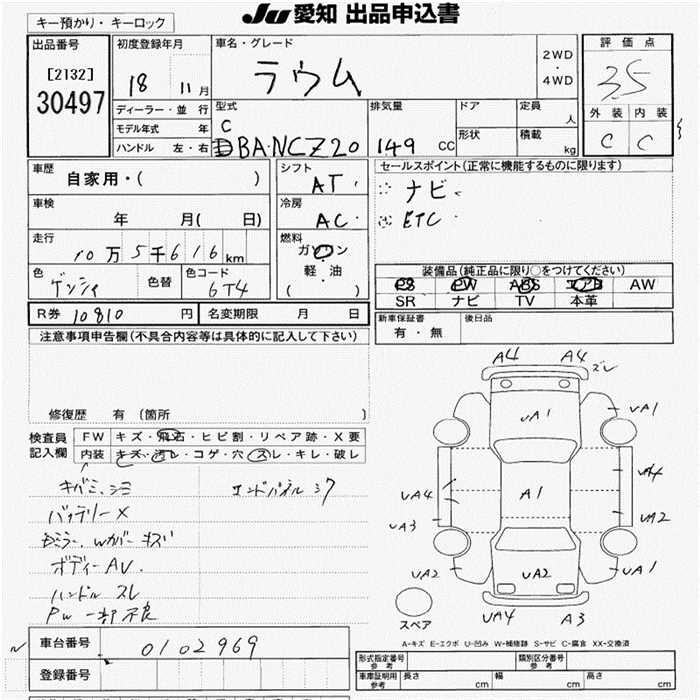 JU 愛知 出品申込書
キー預かり・キーロック
出品番号
[2132]
30497
初度登録年月
18 11月
車名・グレード
ラウム
2WD
・
4WD
評価点
3.5
外装 内装
C C
ディーラー・並行
モデル年式 年
ハンドル 左・右
型式
C
DBA-NCZ20
排気量
149 CC
ドア
形状
定員 人
積載 kg
車歴
自家用・( )
シフト
AT
セールスポイント(正常に機能するものに限ります)
ナビ
ETC
車検
年 月( 日)
冷房
AC
走行
10万5千616km
燃料
ガソリン
軽・油
( )
色
ゲンシャ
色替
色コード
6T4
装備品(純正品に限り○をつけてください)
PS PW ABS エアB AW
SR ナビ TV 本革
R券 10810 円
名変期限 月 日
新車保証書
有・無
後日品
注意事項申告欄(不具合内容等は具体的に記入して下さい)
修復歴 有(箇所 )
検査員
記入欄
FW キズ・飛石・ヒビ割・リペア跡・X要
内装 キズ・汚レ・コゲ・穴・スレ・キレ・破レ
キバミ、シミ
エンドパネル シワ
バッテリーX
Wカバー キズ
ボディーAU
ハンドル スレ
PW 一部不良
A4 A4
ズレ
UA1 UA1
UA4
UA4 A1
UA3 UA2
UA2 UA2 UA1
スペア
UA4 A3
A-キズ E-エクボ U-凹み W-補修跡 S-サビ C-腐食 XX-交換済
車台番号
0102969
登録番号
形式指定番号
参考
類別区分番号
参考
車庫証明用
参考
長さ cm 幅 cm 高さ cm